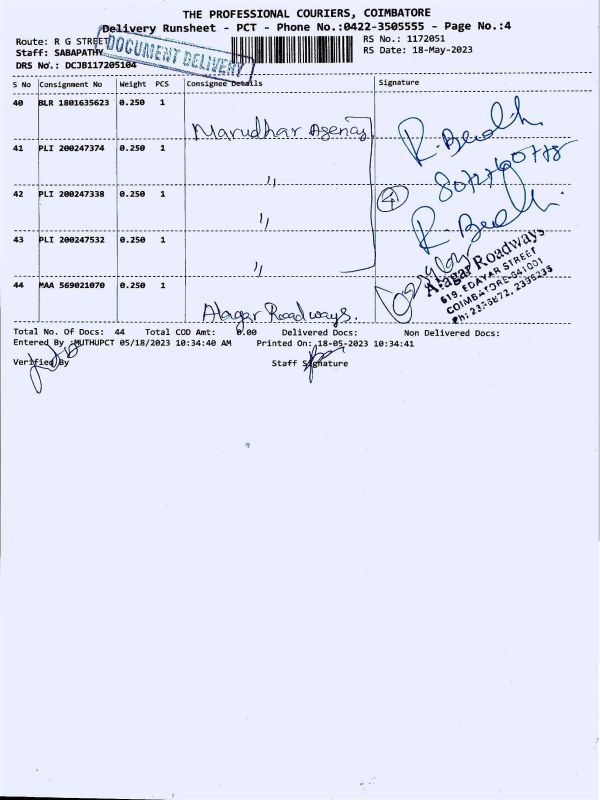 THE PROFESSIONAL COURIERS, COIMBATORE
Delivery Runsheet - PCT - Phone No.:0422-3505555 - Page No.:4
Route: R G STREET
DOCUMENT DELIVERY
RS No.: 1172051
Staff: SABAPATHY
RS Date: 18-May-2023
DRS No.: DCJB117205104
S No Consignment No Weight PCS Consignee Details Signature
40 BLR 1801635623 0.250 1
Marudhar Agency
41 PLI 200247374 0.250 1
"
42 PLI 200247338 0.250 1
" 4
43 PLI 200247532 0.250 1
"
44 MAA 569021070 0.250 1
Alagar Roadways.
R.
R.
Alagar Roadways
619, EDAYAR STREET
COIMBATORE-641001
Total No. Of Docs: 44 Total COD Amt: 0.00 Delivered Docs: Non Delivered Docs:
Entered By :MUTHUPCT 05/18/2023 10:34:40 AM Printed On:18-05-2023 10:34:41
Verified By Staff Signature